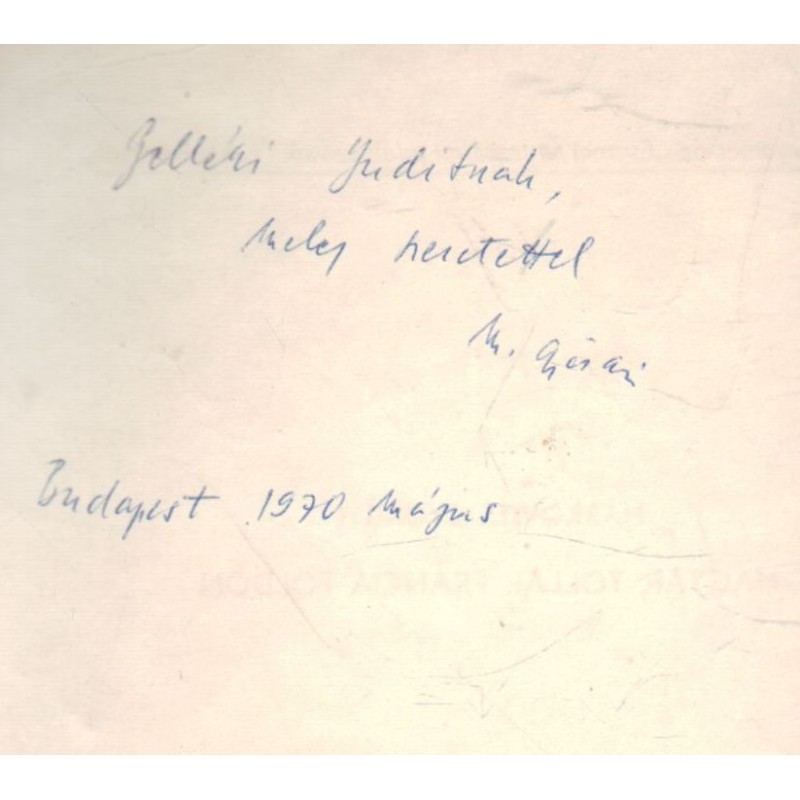 Belléki Juditnak,
meleg szeretettel
M.
Budapest 1970 május
MAGYAR TOLLAL FRANCIA FÖLDÖN